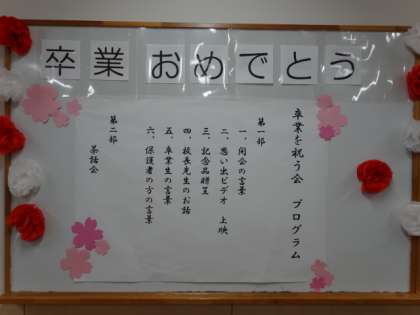 卒業おめでとう
卒業を祝う会　プログラム
第一部
一、開会の言葉
二、思い出ビデオ　上映
三、記念品贈呈
四、校長先生のお話
五、卒業生の言葉
六、保護者の方の言葉
第二部
茶話会